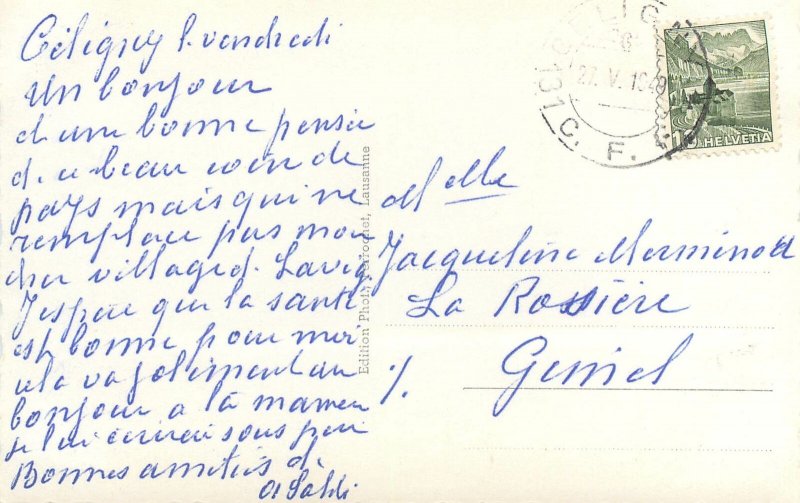 Céligny l. vendredi
Un bonjour
d'une bonne pensée
d. ce beau coin de
pays mais qui ne
remplace pas mon
cher village d.
J'espère que la santé
est bonne pour moi
cela va joliment un
bonjour a ta maman
je lui écrirai sous peu
Bonnes amitiés d'
Edition Photo Perrochet, Lausanne
27. V. 194
C. F. F.
10 HELVETIA
M elle
Jacqueline Merminod
La Rossière
Gimel